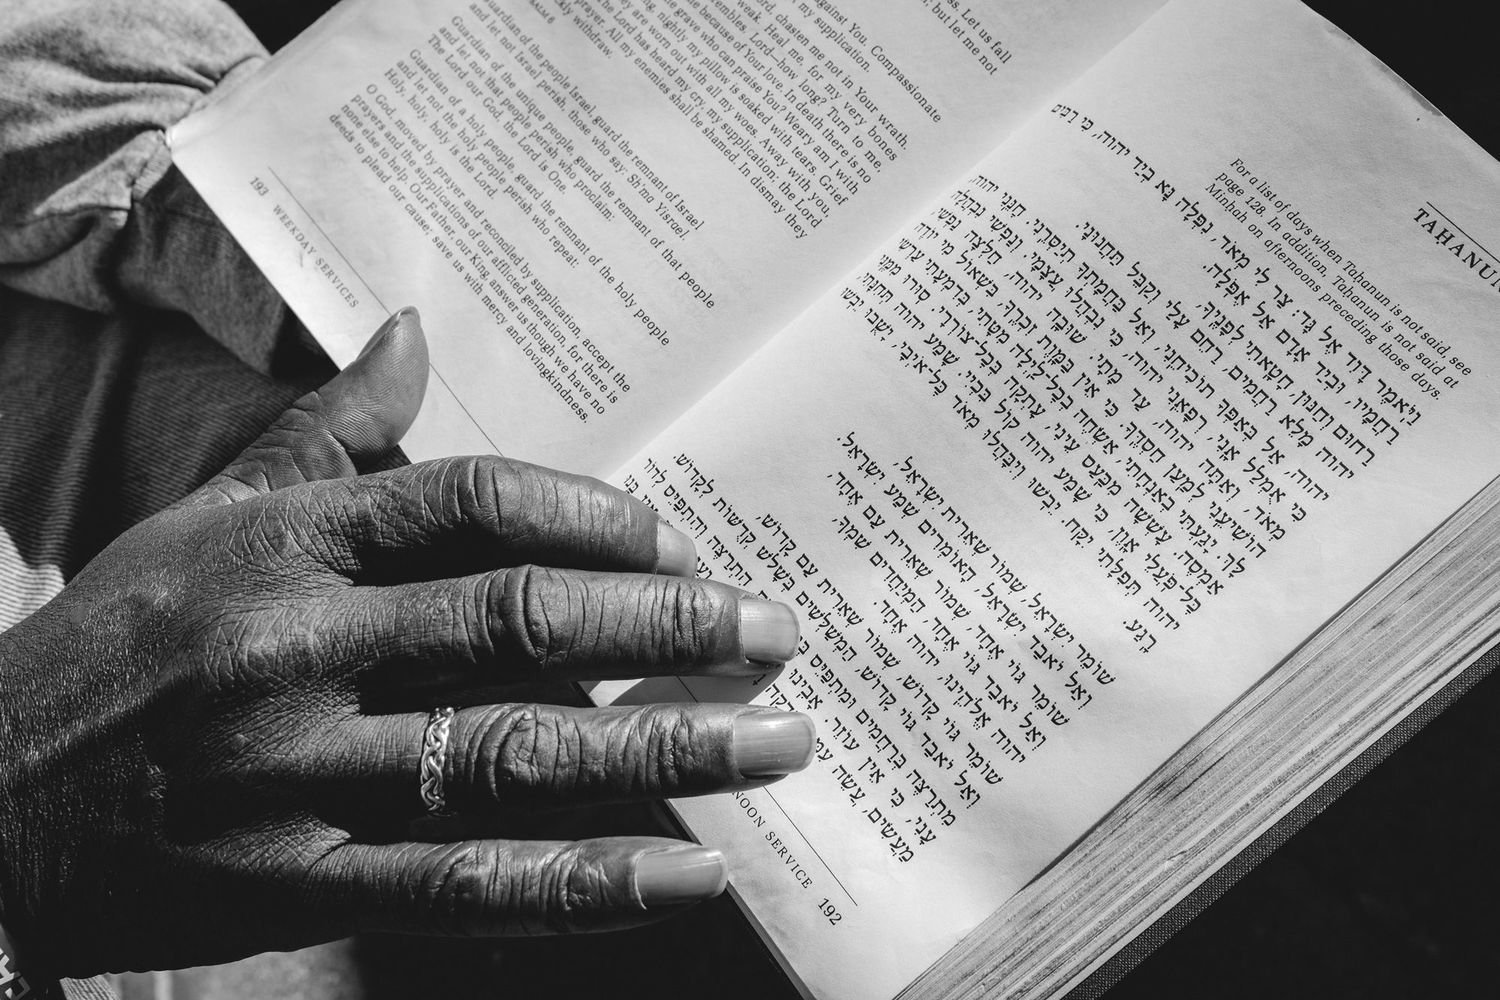 TAḤANUN
For a list of days when Taḥanun is not said, see
page 128. In addition, Taḥanun is not said at
Minḥah on afternoons preceding those days.
וַיֹּאמֶר דָּוִד אֶל גָּד: צַר לִי מְאֹד, נִפְּלָה נָּא בְיַד יהוה, כִּי רַבִּים
רַחֲמָיו, וּבְיַד אָדָם אַל אֶפֹּלָה.
רַחוּם וְחַנּוּן, חָטָאתִי לְפָנֶיךָ,
יהוה מָלֵא רַחֲמִים, רַחֵם עָלַי וְקַבֵּל תַּחֲנוּנָי.
יהוה, אַל בְּאַפְּךָ תוֹכִיחֵנִי, וְאַל בַּחֲמָתְךָ תְיַסְּרֵנִי. חָנֵּנִי יהוה,
כִּי אֻמְלַל אָנִי, רְפָאֵנִי יהוה, כִּי נִבְהֲלוּ עֲצָמָי. וְנַפְשִׁי נִבְהֲלָה
מְאֹד, וְאַתָּה יהוה, עַד מָתָי. שׁוּבָה יהוה, חַלְּצָה נַפְשִׁי,
הוֹשִׁיעֵנִי לְמַעַן חַסְדֶּךָ. כִּי אֵין בַּמָּוֶת זִכְרֶךָ, בִּשְׁאוֹל מִי יוֹדֶה
לָּךְ. יָגַעְתִּי בְּאַנְחָתִי, אַשְׂחֶה בְכָל־לַיְלָה מִטָּתִי, בְּדִמְעָתִי עַרְשִׂי
אַמְסֶה. עָשְׁשָׁה מִכַּעַס עֵינִי, עָתְקָה בְּכָל־צוֹרְרָי. סוּרוּ מִמֶּנִּי
כָּל־פֹּעֲלֵי אָוֶן, כִּי שָׁמַע יהוה קוֹל בִּכְיִי. שָׁמַע יהוה תְּחִנָּתִי,
יהוה תְּפִלָּתִי יִקָּח. יֵבֹשׁוּ וְיִבָּהֲלוּ מְאֹד כָּל־אֹיְבָי, יָשֻׁבוּ יֵבֹשׁוּ
רָגַע.
שׁוֹמֵר יִשְׂרָאֵל, שְׁמוֹר שְׁאֵרִית יִשְׂרָאֵל,
וְאַל יֹאבַד יִשְׂרָאֵל, הָאוֹמְרִים שְׁמַע יִשְׂרָאֵל.
שׁוֹמֵר גּוֹי אֶחָד, שְׁמוֹר שְׁאֵרִית עַם אֶחָד,
וְאַל יֹאבַד גּוֹי אֶחָד, הַמְיַחֲדִים שִׁמְךָ,
יהוה אֱלֹהֵינוּ, יהוה אֶחָד.
שׁוֹמֵר גּוֹי קָדוֹשׁ, שְׁמוֹר שְׁאֵרִית עַם קָדוֹשׁ,
וְאַל יֹאבַד גּוֹי קָדוֹשׁ, הַמְשַׁלְּשִׁים בְּשָׁלֹשׁ קְדֻשּׁוֹת לְקָדוֹשׁ.
מִתְרַצֶּה בְּרַחֲמִים וּמִתְפַּיֵּס הִתְרַצֵּה וְהִתְפַּיֵּס לְדוֹר
עָנִי, כִּי אֵין עוֹזֵר. אָבִינוּ
מַעֲשִׂים, עֲשֵׂה
NOON SERVICE 192
ss. Let us fall
but let me not
against You. Compassionate
my supplication.
Lord, chasten me not in Your wrath.
weak. Heal me, for my very bones
trembles. Lord—how long? Turn to me,
because of Your love. In death there is no
the grave who can praise You? Weary am I with
nightly my pillow is soaked with tears. Grief
they are worn out with all my woes. Away with you,
the Lord has heard my cry, my supplication; the Lord
prayer. All my enemies shall be shamed. In dismay they
quickly withdraw.
PSALM 6
Guardian of the people Israel, guard the remnant of Israel
and let not Israel perish, those who say: Sh'ma Yisrael.
Guardian of the unique people, guard the remnant of that people
and let not that people perish who proclaim:
The Lord our God, the Lord is One.
Guardian of a holy people, guard the remnant of the holy people
and let not the holy people perish who repeat:
Holy, holy, holy is the Lord.
O God, moved by prayer and reconciled by supplication, accept the
prayers and the supplications of our afflicted generation, for there is
none else to help. Our Father, our King, answer us though we have no
deeds to plead our cause; save us with mercy and lovingkindness.
193 WEEKDAY SERVICES